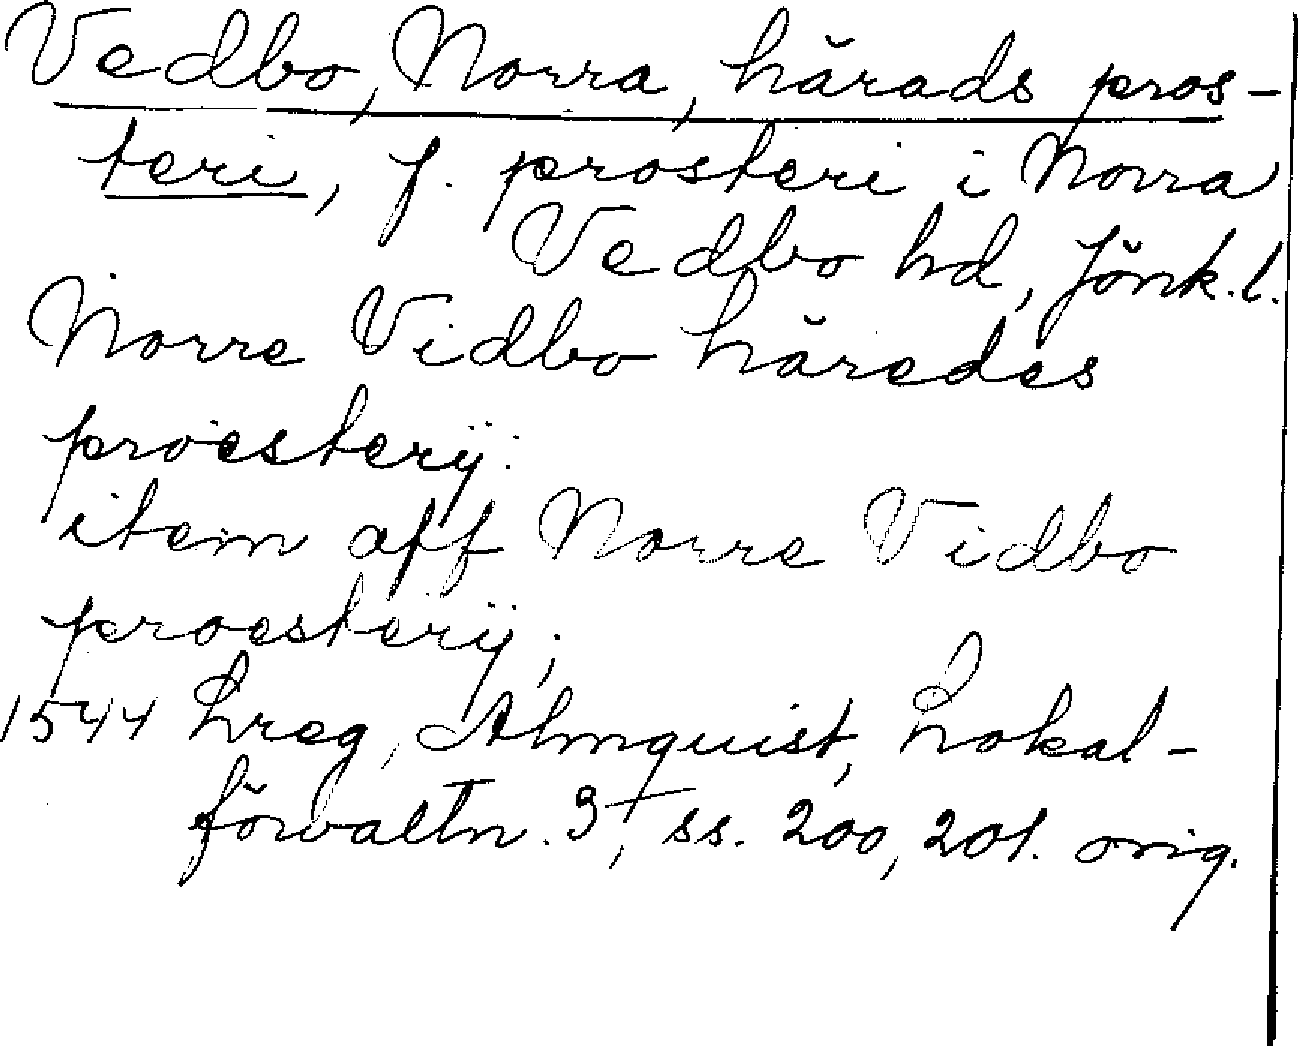 Vedbo, Norra, härads pros-
teri, f. prosteri i Norra
Vedbo hd, Jönk. l.
Norre Vidbo häredes
proesterÿ:
item aff Norre Vidbo
proesterÿ;
1544 Lreg, Almquist, Lokal-
förvaltn. 3, ss. 200, 201. orig.